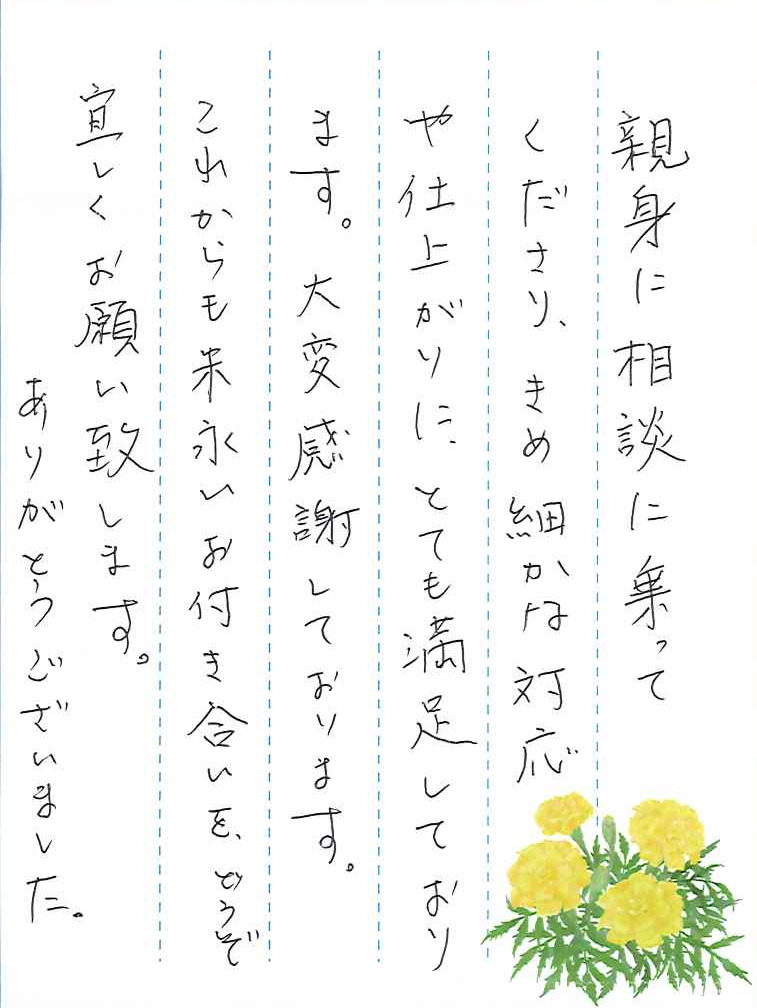 親身に相談に乗って
くださり、きめ細かな対応
や仕上がりに、とても満足しており
ます。大変感謝しております。
これからも末永いお付き合いを、どうぞ
宜しくお願い致します。
ありがとうございました。